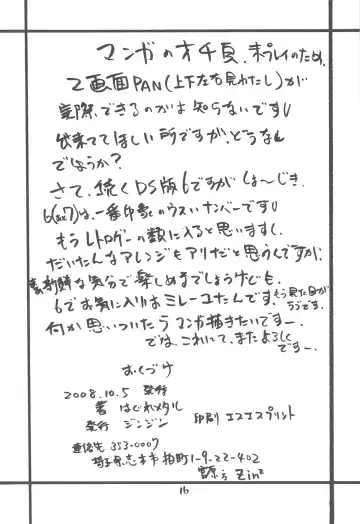 マンガのオチ頁、未プレイのため
2画面PAN(上下左右見わたし)が
実際、できるのかは知らないです
出来ててほしい所ですが、どうなん
でしょうか?
さて、続くDS版6ですが しょーじき、
6は、一番印象のウスいナンバーです
もうレトロゲーの類に入ると思いますし、
だいたんなアレンジもアリだと思うんですが、
新鮮な気分で楽しめますでしょうけども。
6でお気に入りはミレーユたんです。もう見た目が
ラブです。
何か思いついたらマンガ描きたいですー。
では、これにて、またよろしく
ですー。
おくづけ
2008.10.5 発行
著 はぐれメタル
発行 ジンジン 印刷 エスエスプリント
連絡先 353-0007
埼玉県志木市柏町1-9-22-402
宮原方 Zin
16